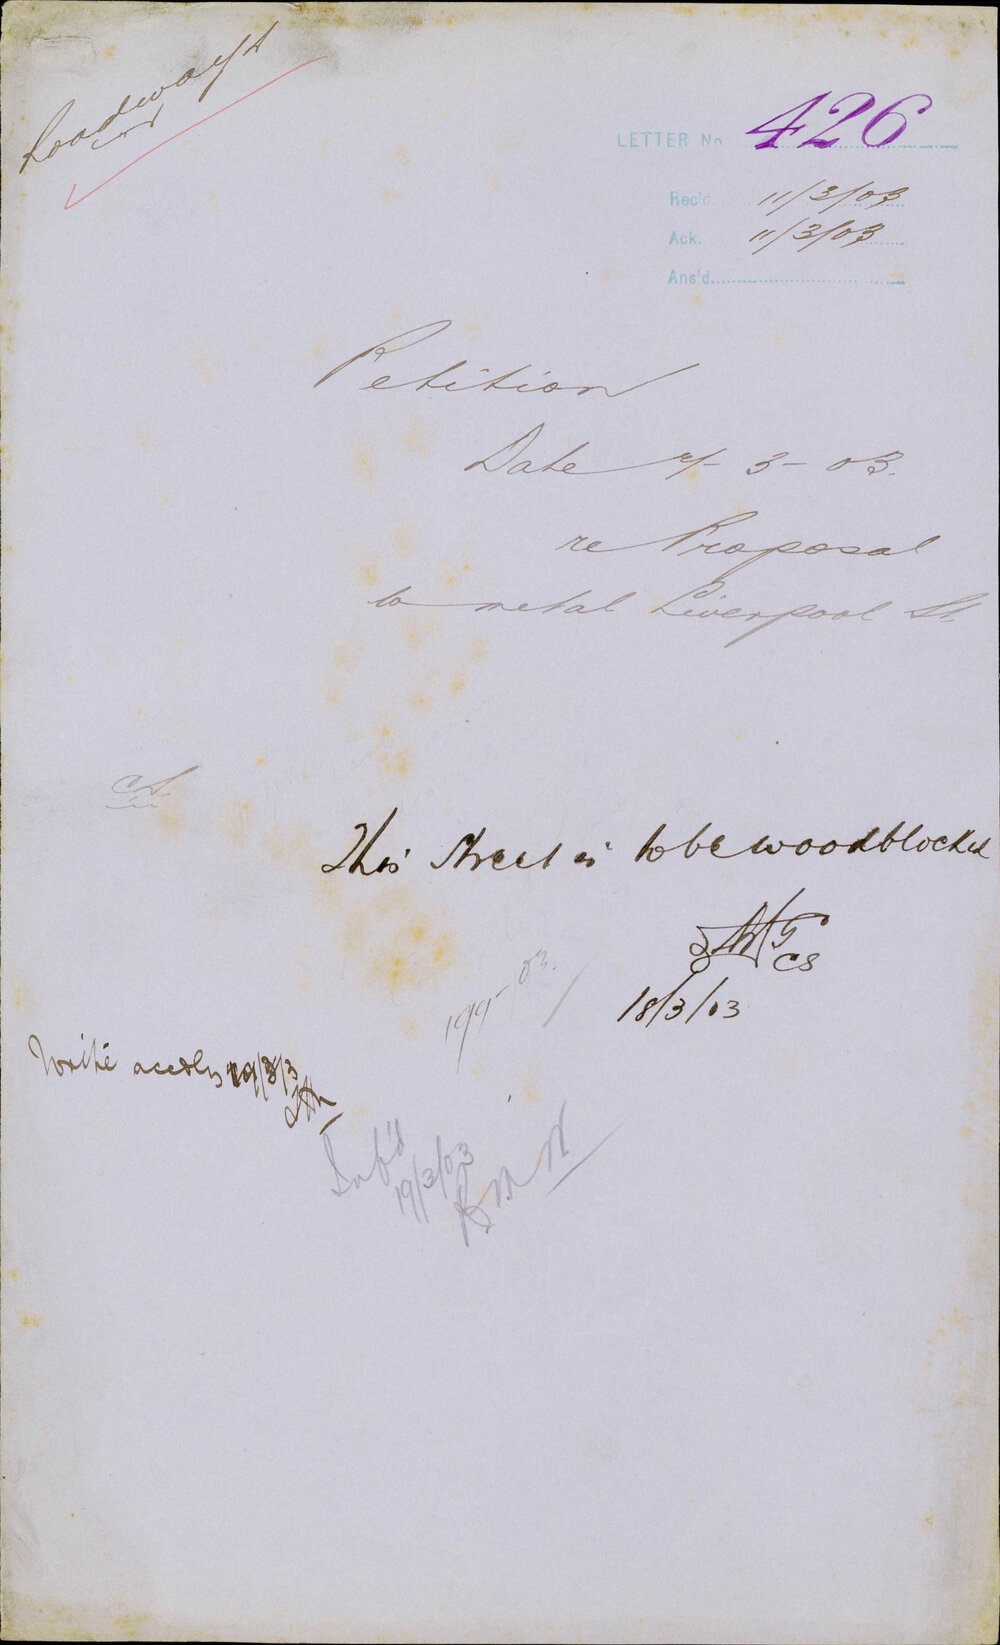 Roadways
LETTER No 426
Rec'd 11/3/03
Ack. 11/3/03
Ans'd
Petition
Date 3-03.
re Proposal
to metal Liverpool St.
CS.
This Street is to be woodblocked
CS
18/3/03
Write accdly 19/3/3
Sub'd
19/3/03